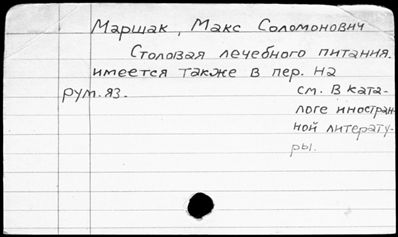 Маршак, Макс Соломонович
Столовая лечебного питания.
имеется также в пер. на
рум. яз. см. в ката-
логе иностран-
ной литерату-
ры.